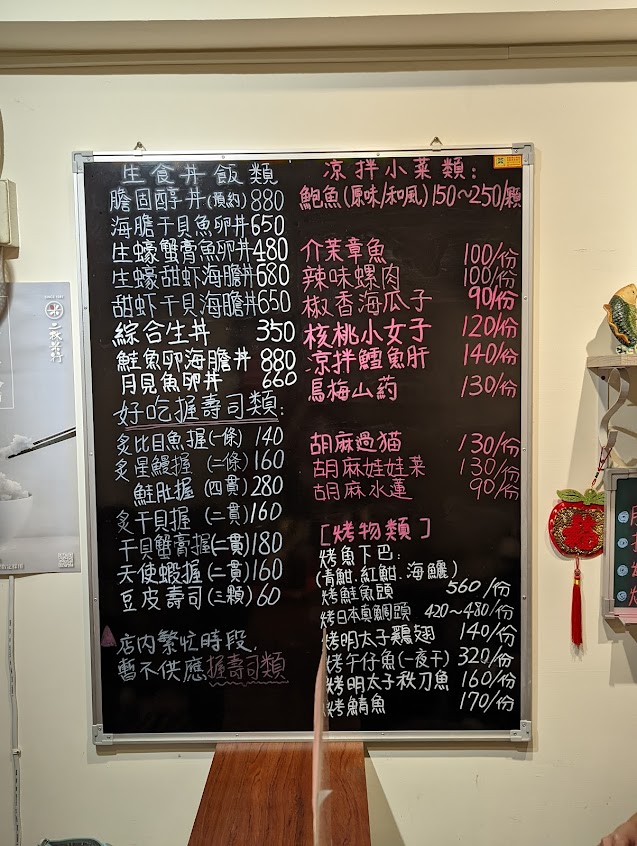 生食丼飯類
膽固醇丼(預約)880
海膽干貝魚卵丼650
生蠔蟹膏魚卵丼480
生蠔甜虾海膽丼680
甜虾干貝海膽丼650
綜合生丼 350
鮭魚卵海膽丼 880
月見魚卵丼 660
好吃握壽司類:
炙比目魚握(一條) 140
炙星鰻握 (二條)160
鮭肚握 (四貫)280
炙干貝握 (二貫)160
干貝蟹膏握(二貫)180
天使蝦握(二貫)160
豆皮壽司(三顆)60
店内繁忙時段,
暫不供應握壽司類
涼拌小菜類:
鮑魚(原味/和風)150~250/顆
介茉章魚 100/份
辣味螺肉 100/份
椒香海瓜子 90/份
核桃小女子 120/份
涼拌鱈魚肝 140/份
烏梅山药 130/份
胡麻過猫 130/份
胡麻娃娃菜 130/份
胡麻水蓮 90/份
[烤物類]
烤魚下巴:
(青魽.紅魽.海鱺)
烤鮭魚頭 560/份
烤日本真鯛頭 420~480/份
烤明太子鷄翅 140/份
烤午仔魚(一夜干)320/份
烤明太子秋刀魚 160/份
烤鯖魚 170/份